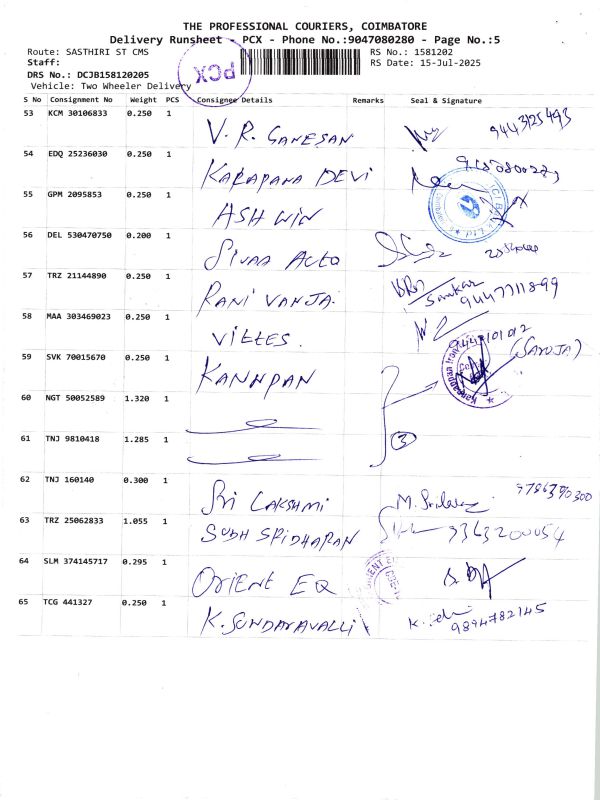 THE PROFESSIONAL COURIERS, COIMBATORE
Delivery Runsheet - PCX - Phone No.:9047080280 - Page No.:5
Route: SASTHIRI ST CMS RS No.: 1581202
Staff: RS Date: 15-Jul-2025
PCX
DRS No.: DCJB158120205
Vehicle: Two Wheeler Delivery
S No Consignment No Weight PCS Consignee Details Remarks Seal & Signature
53 KCM 30106833 0.250 1
V. R. GANESAN 9443125493
54 EDQ 25236030 0.250 1
KARAPANA DEVI
55 GPM 2095853 0.250 1
ASHWIN
56 DEL 530470750 0.200 1
SIVAA AUTO
57 TRZ 21144890 0.250 1
RANI VANJA. Sankar
9447711899
58 MAA 303469023 0.250 1
VITTES.
(SAROJA)
59 SVK 70015670 0.250 1
KANNPAN
60 NGT 50052589 1.320 1
3
61 TNJ 9810418 1.285 1
62 TNJ 160140 0.300 1
SRI LAKSHMI 9786390300
63 TRZ 25062833 1.055 1
SUBH SRIDHARAN 9363200054
64 SLM 374145717 0.295 1
ORIENT EQ
65 TCG 441327 0.250 1
K. SUNDARAVALLI 9894782145